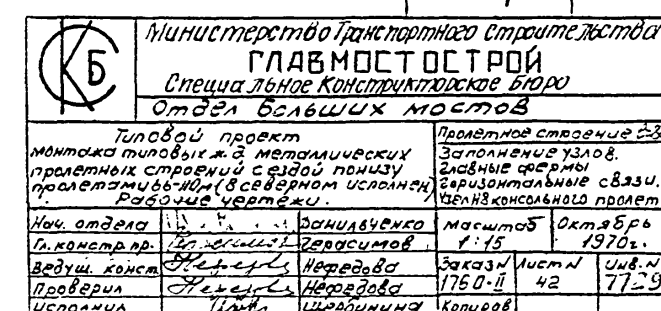 СКБ
Министерство Транспортного строительства
ГЛАВМОСТОСТРОЙ
Специальное Конструкторское Бюро
Отдел Больших мостов
Типовой проект
монтажа типовых ж.д металлических
пролетных строений с ездой понизу
пролетами 66-110м (в северном исполнен)
Рабочие чертежи.
Пролетное строение
Заполнение узлов.
Главные фермы
Горизонтальные связи.
консольного пролет
Нач. отдела Данильченко
Гл. констр. пр. Герасимов
Ведущ. конст Нефедова
Проверил Нефедова
Исполнил Щербинина
Масштаб 1:15
Октябрь 1970г.
Заказ N 1760-II
Лист N 42
Инв. N
Копиров